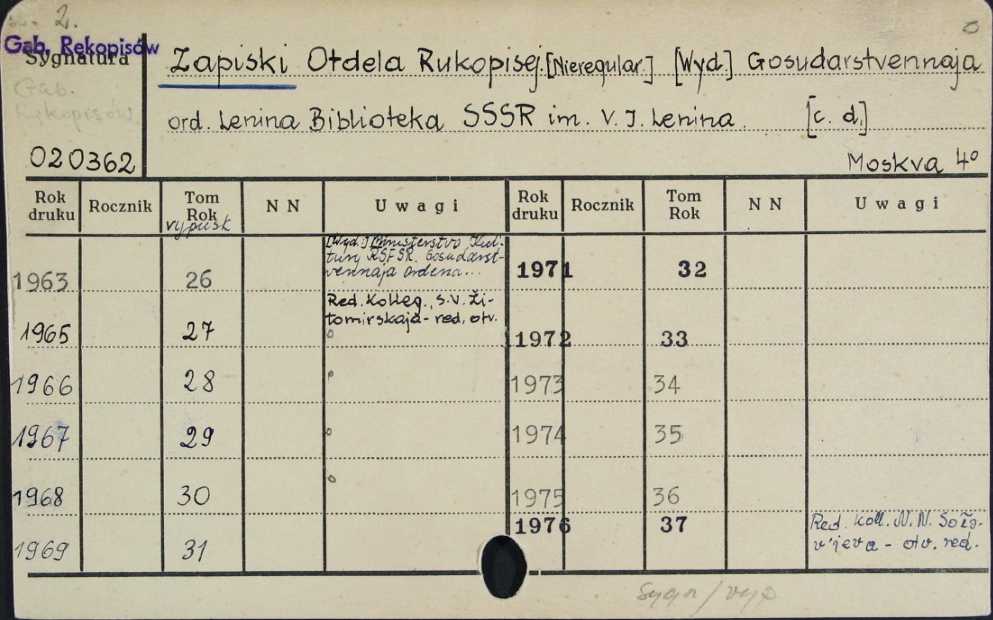 2.
Gab. Rękopisów
Sygnatura
Gab.
Rękopisów
020362
Zapiski Otdela Rukopisej. [Nieregular.] [Wyd.] Gosudarstvennaja
ord. Lenina Biblioteka SSSR im. V. I. Lenina. [c. d.]
Moskva 4°
Rok druku Rocznik Tom Rok vypusk NN Uwagi Rok druku Rocznik Tom Rok NN Uwagi
1963 26 [Wyd.] Ministerstvo Kul-
tury RSFSR. Gosudarst-
vennaja ordena...
1965 27 Red. Kolleg., S. V. Ži-
tomirskaja - red. otv.
1966 28
1967 29
1968 30
1969 31
1971 32
1972 33
1973 34
1974 35
1975 36
1976 37 Red. Koll. N. N. Solo-
v'jeva - otv. red.
Sygn / vyp